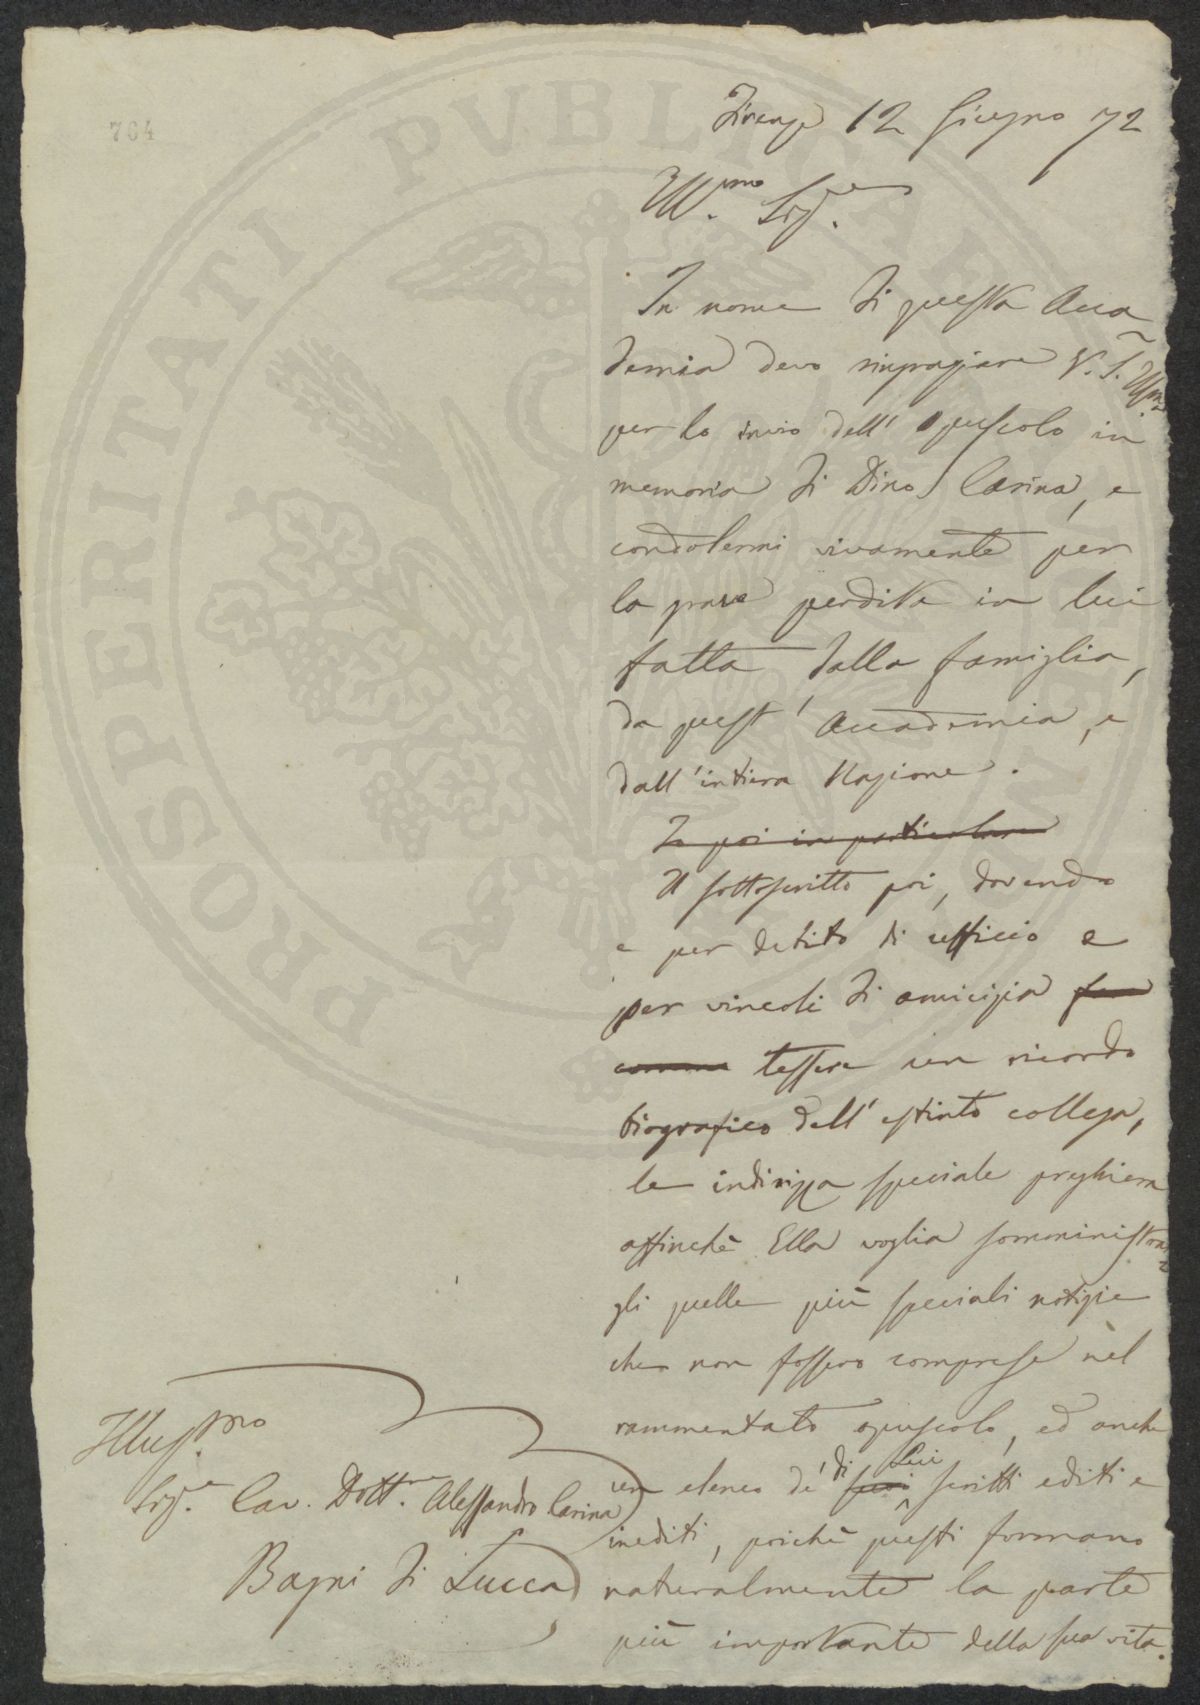 764
Firenze 12 Giugno 72
Ill.mo Sig.e
In nome di questa Acca
demia devo ringraziare V. S. Illma
per lo invio dell' opuscolo in
memoria di Dino Carina, e
condolermi vivamente per
la grave perdita in lui
fatta dalla famiglia,
da quest' Accademia, e
dall'intiera Nazione.
Io poi in particolare
Il sottoscritto poi, dovendo
e per debito di ufficio e
per vincoli di amicizia
tessere un ricordo
biografico dell' estinto collega,
le indirizza speciale preghiera
affinchè Ella voglia somministrar
gli quelle più speciali notizie
che non fossero comprese nel
rammentato opuscolo, ed anche
un elenco de' di suoi Lui scritti editi e
inediti, poichè questi formano
naturalmente la parte
più importante della sua vita.
Illus.mo
Sig.e Cav. Dott.re Alessandro Carina
Bagni di Lucca
PROSPERITATI PVBLICAE